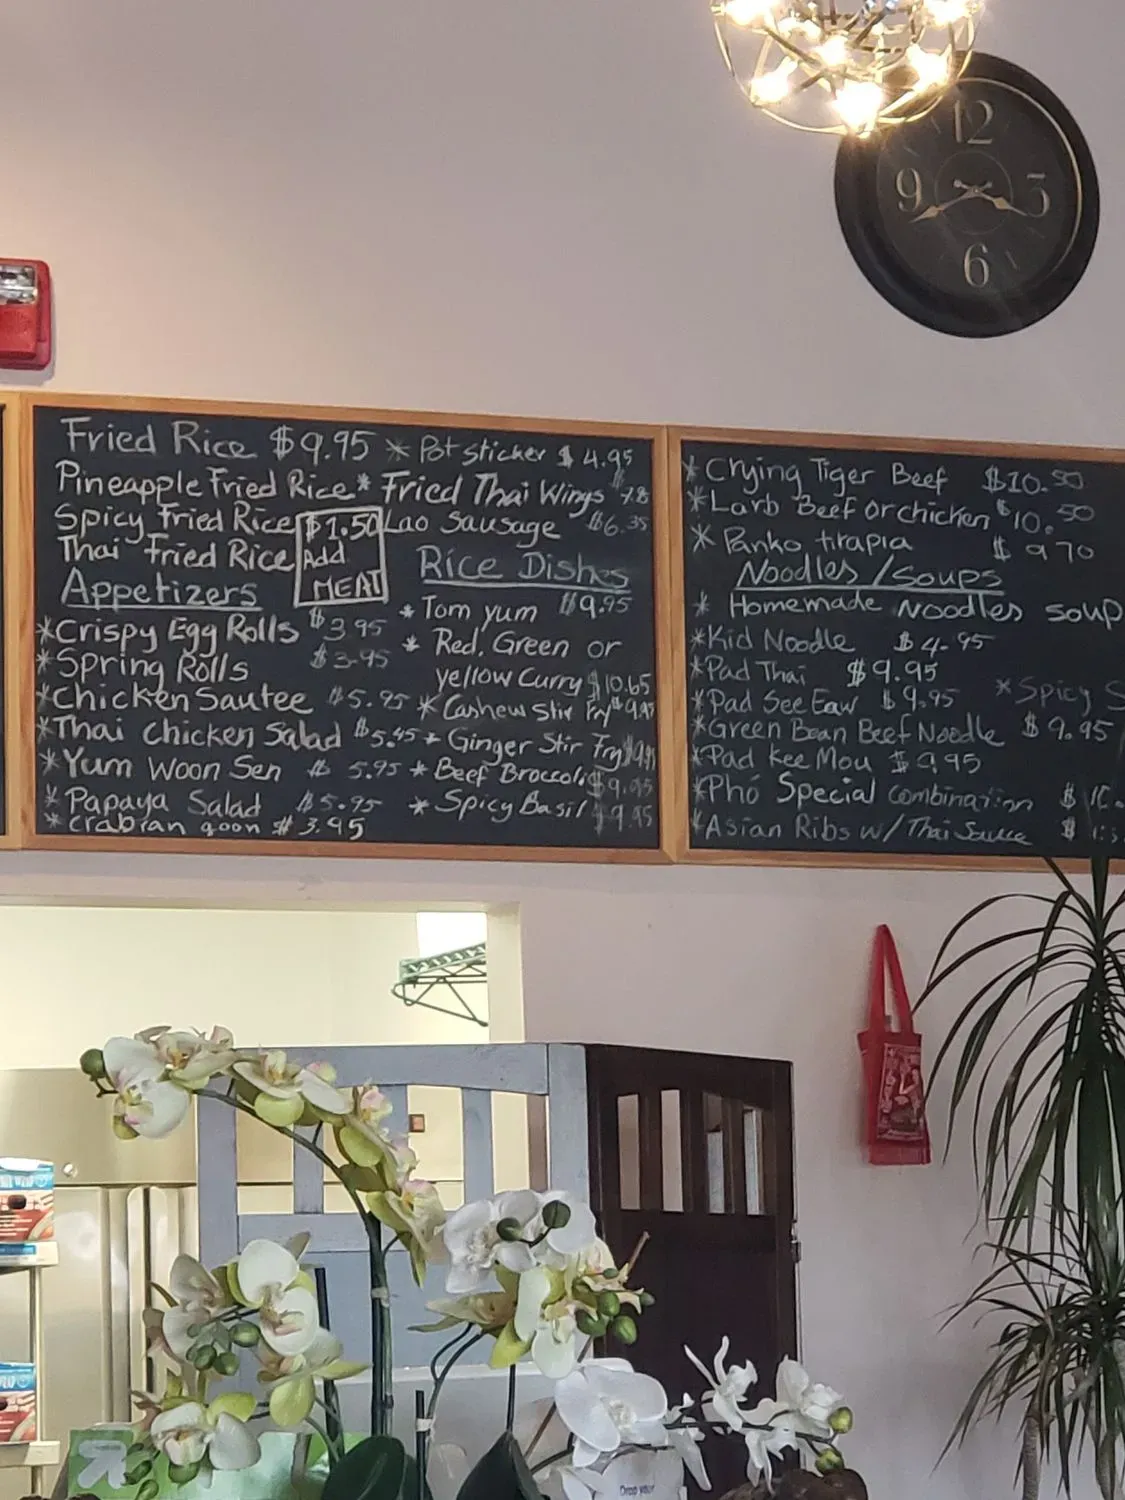 12
9 3
6
Fried Rice $9.95
Pineapple Fried Rice
Spicy Fried Rice
Thai Fried Rice
$1.50
Add
MEAT
Appetizers
*Crispy Egg Rolls $3.95
*Spring Rolls $3.95
*Chicken Sautee $5.95
*Thai Chicken Salad $5.45
*Yum Woon Sen $5.95
*Papaya Salad $5.95
*crabran goon $3.95
* Pot sticker $4.95
* Fried Thai Wings
Lao Sausage $6.35
Rice Dishes
*Tom yum $9.95
* Red, Green or
yellow Curry $10.65
* Cashew Stir Fry
* Ginger Stir Fry
* Beef Broccoli $9.95
* Spicy Basil $9.95
* Crying Tiger Beef $10.50
*Larb Beef or chicken $10.50
* Panko tirapia $9.70
Noodles/Soups
* Homemade Noodles soup
*Kid Noodle $4.95
*Pad Thai $9.95
*Pad See Eaw $9.95
*Spicy
*Green Bean Beef Noodle $9.95
*Pad kee Mou $9.95
*Phó Special combination
*Asian Ribs w/Thai Sauce
Drop your